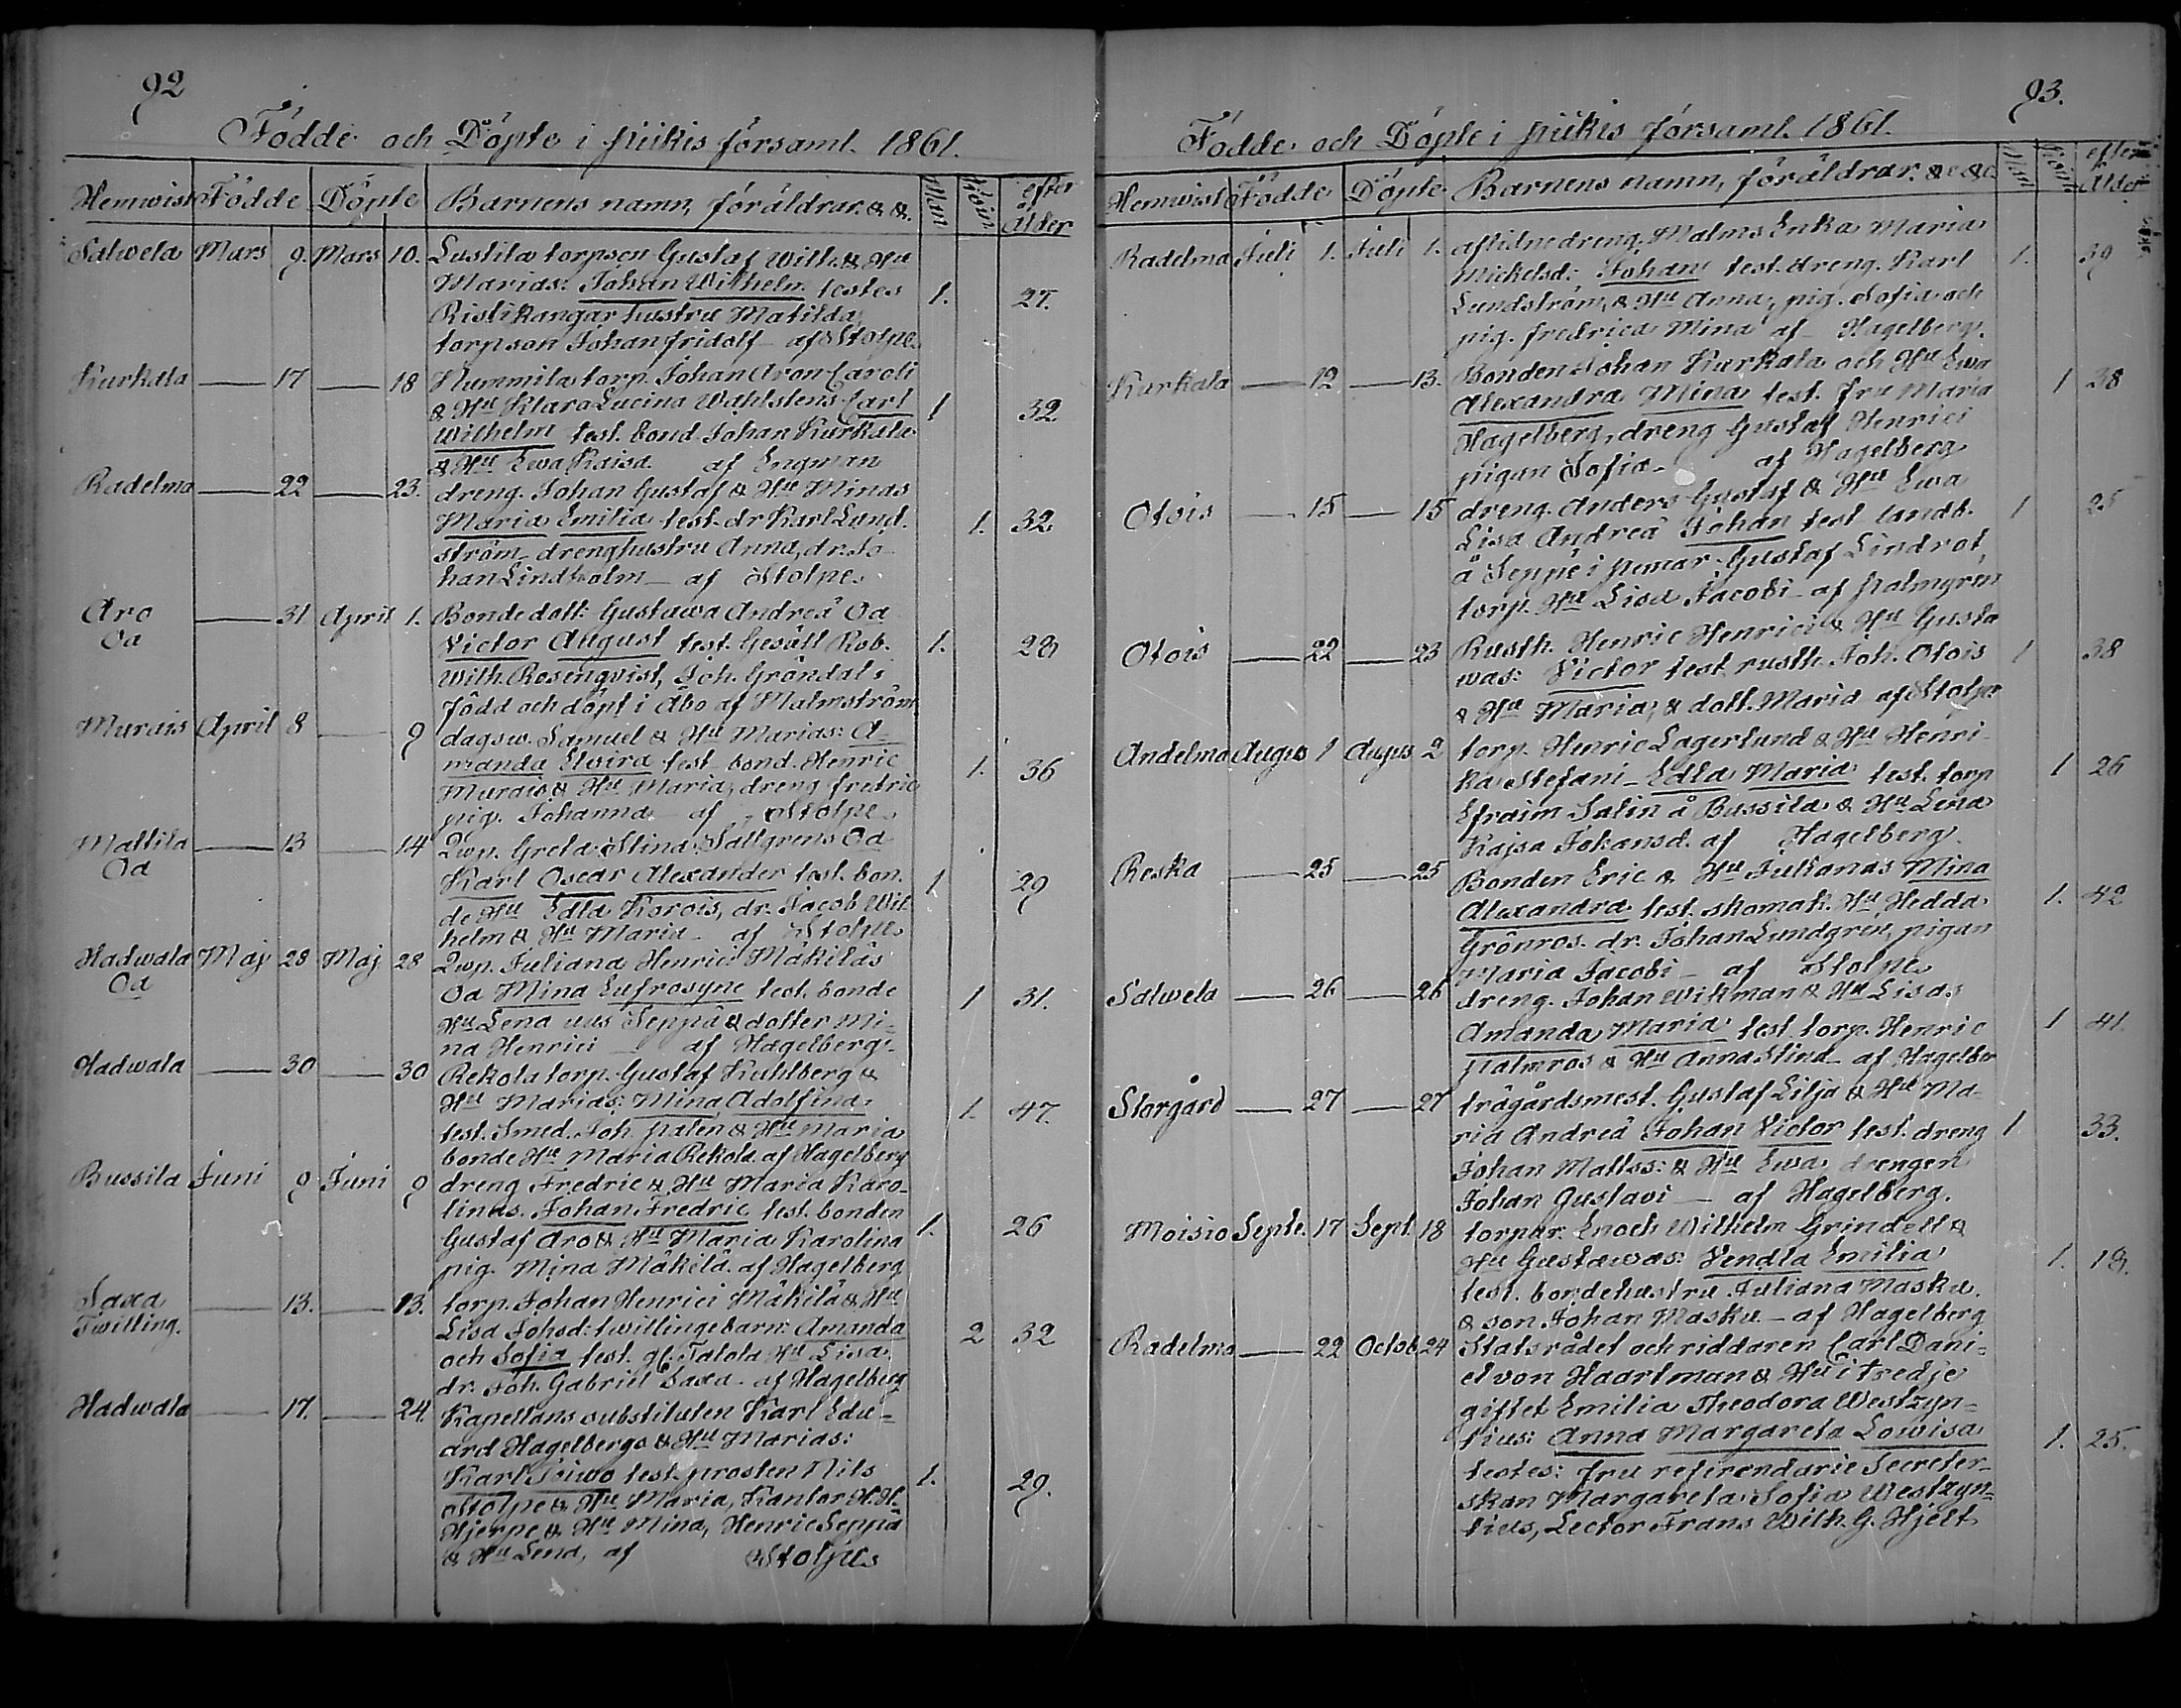 92
Födde och Döpte i piikis församl. 1861.
Hemwist Födde Döpte Barnens namn, föräldrar. & &. Men Qwin efter ålder
Salwela Mars 9. Mars 10. Lustila torpson Gustaf Wilh. & Hu
Marias: Johan Wilhelm testes 1. 27.
Ristikangar hustru Matilda
torpson Johan fridolf af Stolpe
Kurkala — 17 — 18 Nummila torp. Johan Aron Caroli
& Hu Klara Lucina Wahlstens Carl 1 32
Wilhelm test. bond Johan Kurkala
& Hu Ewa Kaisa. af Engman
Radelma — 22 — 23. dreng. Johan Gustaf & Hu Minas
Maria Emilia test. dr Karl Lund- 1. 32
ström drenghustru Anna, dr. Jo-
han Lindholm — af Stolpe
Aro — 31 April 1. Bondedott: Gustawa Andreä Oä
Oä Victor August test. Gesäll Rob. 1. 28
Wilh. Rosenqvist, Joh. Gröndal:
född och döpt i Åbo af Malmström
Murais April 8 — 9 dagsw. Samuel & Hu Marias: A-
manda Elvira test bond. Henric 1. 36
Murais & Hu Maria, dreng fredric
pig. Johanna — af Stolpe
Mattila — 13 — 14 Qwp. Greta Stina Sallgrens Oä
Oä Karl Oscar Alexander test. bon- 1 29
de Hu Edla Korois, dr. Jacob Wil-
helm & Hu Maria — af Stolpe
Hadwala Maj 28 Maj 28 Qwp. Juliana Henrici Mäkiläs
Oä Oä Mina Eufrosyne test. bonde 1 31.
Hu Lena uus Seppä & dotter Mi-
na Henrici — af Hagelberg.
Hadwala — 30 — 30 Rekola torp. Gustaf Kuhlberg &
Hu Marias: Mina Adolfina 1. 47.
test. Smed. Joh. palen & Hu Maria
bonde Hu Maria Rekola af Hagelberg
Bussila Juni 9 Juni 9 dreng Fredric & Hu Maria Karo-
linas. Johan Fredric test. bonden 1. 26
Gustaf Aro & Hu Maria Karolina
pig. Mina Mäkilä. af Hagelberg
Saxa — 13. — 13. torp. Johan Henrici Mäkilä & Hu
Twilling. Lisa Johsd: twillingebarn: Amanda 2 32
och Sofia test. gf. Talola Hu Lisa.
dr. Joh. Gabriel Saxa. af Hagelberg
Hadwala — 17. — 24. Kapellans substituten Karl Edu-
ard Hagelbergs & Hu Marias:
Karl Toiwo test. prosten Nils 1. 29.
Stolpe & Hu Maria, Kantor H. H.
Hjerpe & Hu Mina, Henric Seppä
& Hu Lena, af Stolpe
93.
Födde och Döpte i piikis församl. 1861.
Hemwist Födde Döpte Barnens namn, föräldrar. &c &c. Men Qwin efter Ålder
Radelma Juli 1. Juli 1. aflidne dreng. Malms Enka Maria
Mickelsd: Johan test. dreng. Karl 1. 39
Lundström, & Hu Anna, pig. Sofia och
pig. fredrica Mina af Hagelberg.
Kurkala — 12 — 13. Bonden Johan Kurkala och Hu Ewa
Alexandra Mina test. fru Maria 1 38
Hagelberg, dreng Gustaf Henrici
pigan Sofia — af Hagelberg
Otois — 15 — 15 dreng. Anders Gustaf & Hu Ewa
Lisa Andreä Johan test landb. 1 25
å Seppe i pemar Gustaf Lindrot,
torp. Hu Lisa Jacobi af palmgren
Otois — 22 — 23 Rusth. Henric Henrici & Hu Gusta
was: Victor test rusth. Joh. Otois 1 38
& Hu Maria, & dott. Maria af Stolpe
Andelma Augus 1 Augus 2 torp. Henric Lagerlund & Hu Henri-
ka Stefani — Edla Maria test. torp 1 26
Efraim Salin å Bussila & Hu Lena
Kajsa Johansd. af Hagelberg.
Reska — 25 — 25 Bonden Eric & Hu Julianas Mina
Alexandra test. skomak. Hu Hedda 1. 42
Grönros. dr. Johan Lundgren, pigan
Maria Jacobi — af Stolpe
Salwela — 26 — 26 dreng. Johan Wikman & Hu Lisas
Amanda Maria test torp. Henric 1 41.
palmros & Hu Anna Stina — af Hagelber
Storgård — 27 — 27 trägårdsmest. Gustaf Lilja & Hu Ma-
ria Andreä Johan Victor test. dreng 1 33.
Johan Matlss: & Hu Ewa, drengen
Johan Gustavi — af Hagelberg.
Moisio Septe. 17 Sept. 18 torpar. Enoch Wilhelm Grindell &
Hu Gustawas: Vendla Emilia 1. 18.
test. bondehustru Juliana Masku
& son Johan Masku — af Hagelberg
Radelma — 22 Octob. 24 Statsrådet och riddaren Carl Dani-
el von Haartman & Hu i tredje
giftet Emilia Theodora Westzyn-
tius: Anna Margareta Lowisa 1. 25.
testes: fru referendarie Secreter-
skan Margareta Sofia Westzyn-
tius, Lector Frans Wilh. G. Hjelt